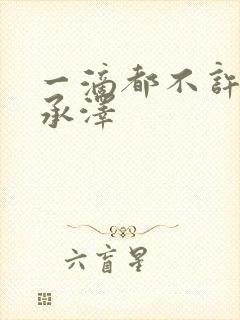 一滴都不許
承澤
六盲星